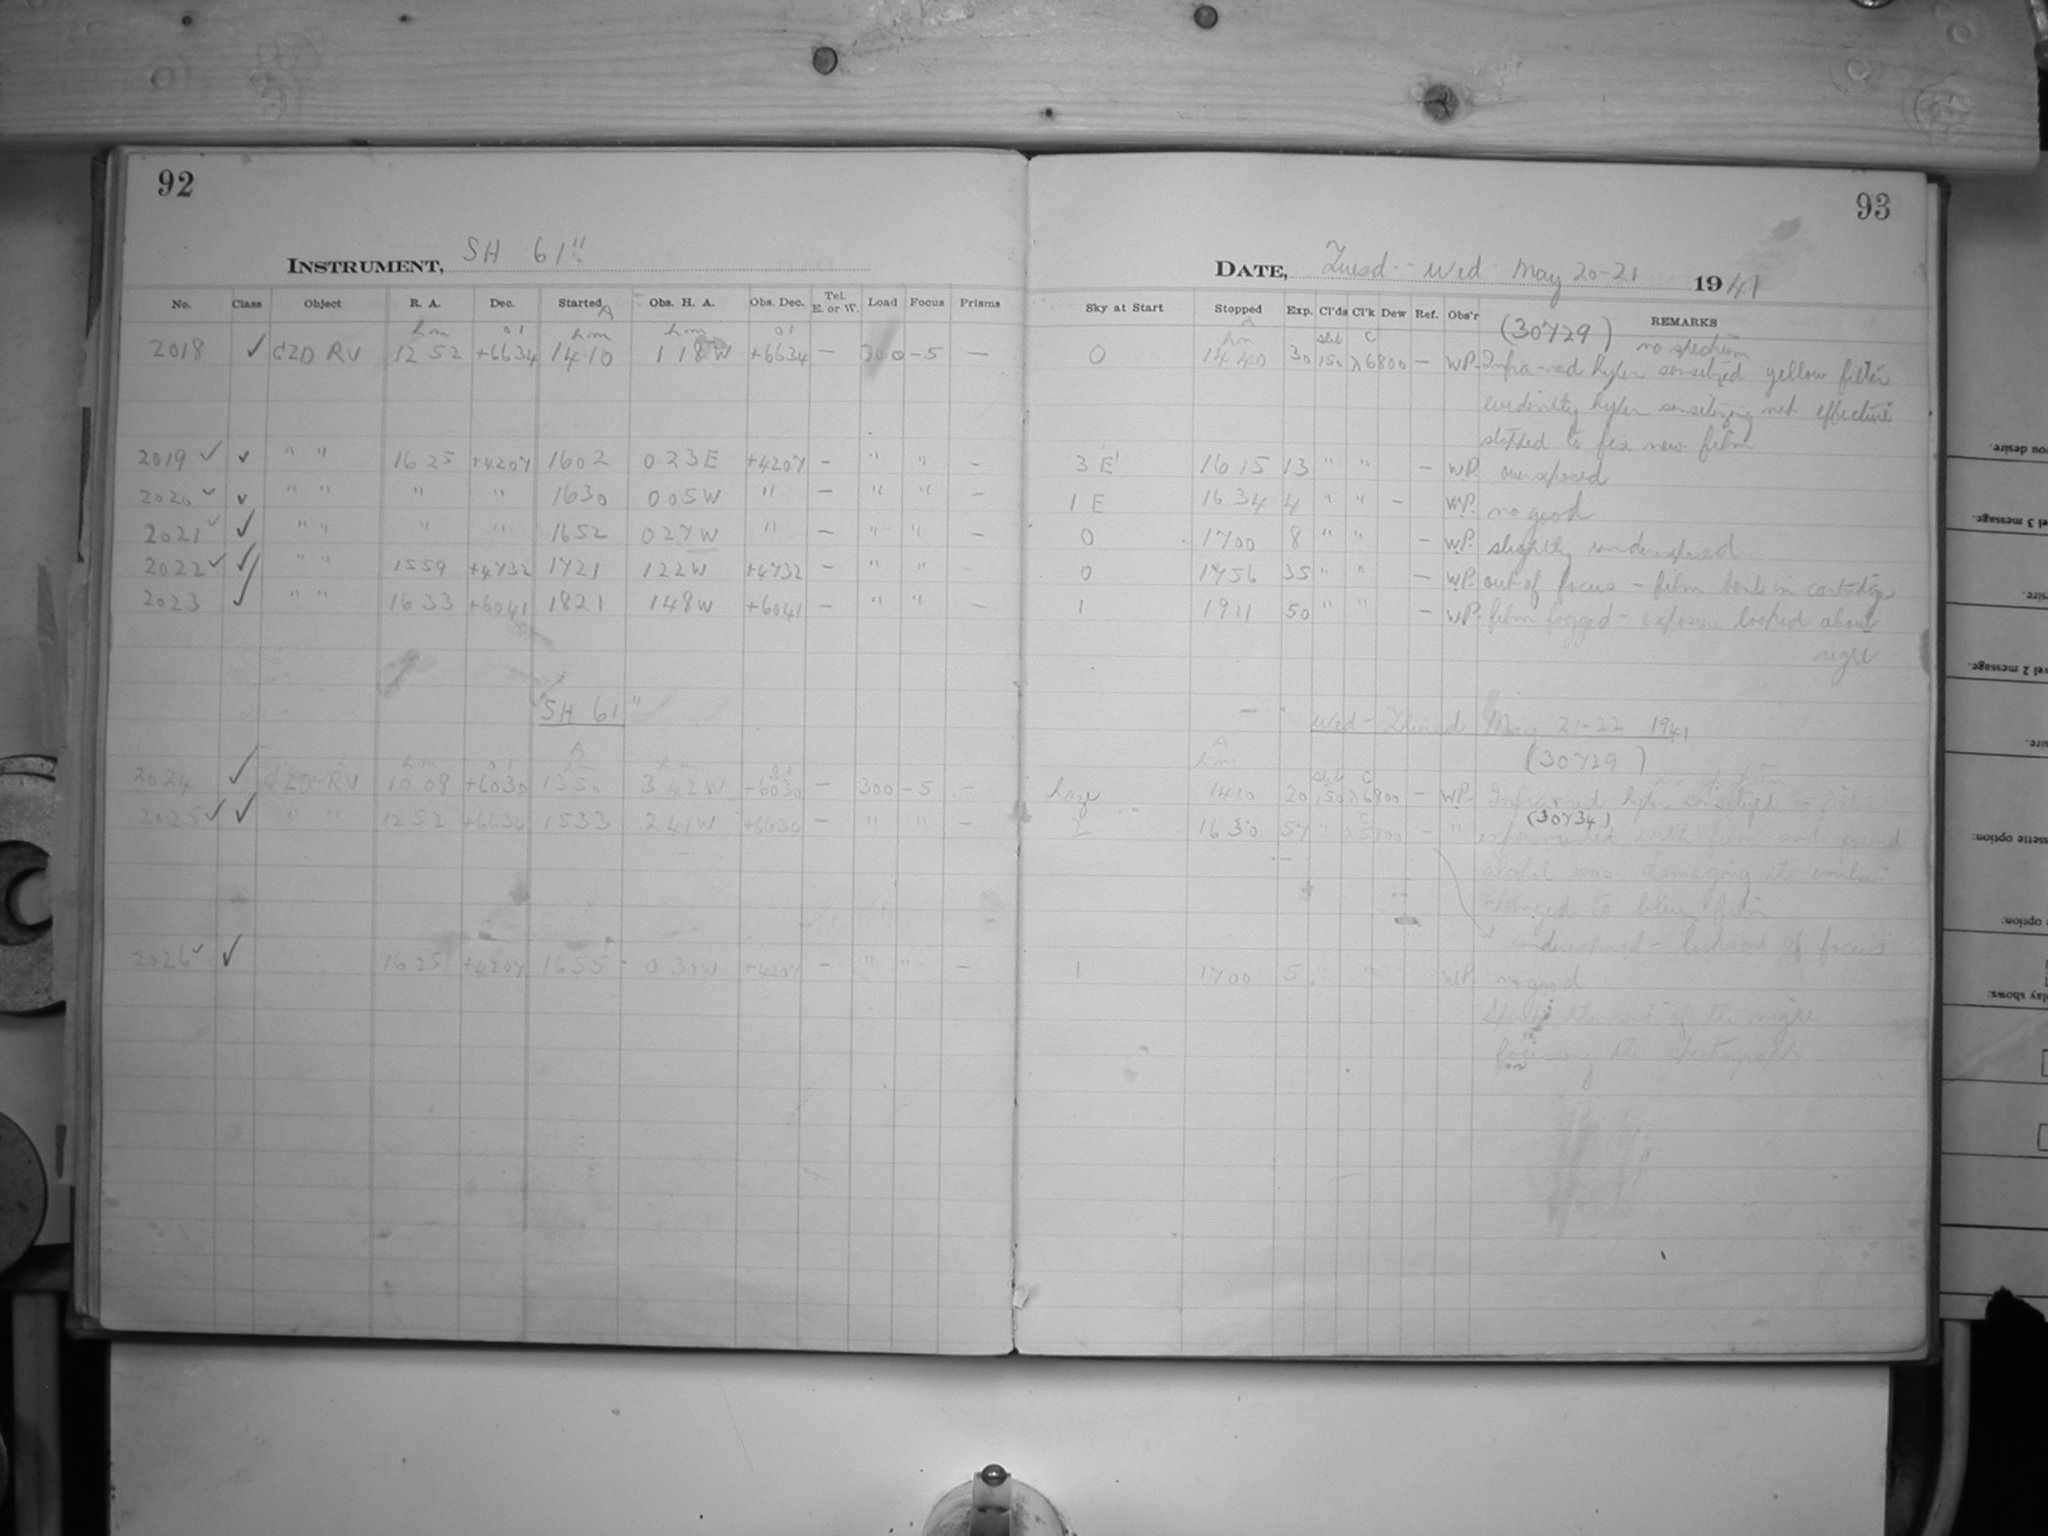 92
INSTRUMENT, SH 61"
No. Class Object R. A. Dec. Started Obs. H. A. Obs. Dec. Tel. E. or W. Load Focus Prisms
A
h m o ' h m h m o '
2018 ✓ CZD RV 12 52 +6634 14 10 1 18 W +6634 — 300 -5 —
2019 ✓ ✓ " " 16 25 +4207 1602 0 23 E +4207 — " " —
2020 ✓ ✓ " " " " 1630 0 05 W " — " " —
2021 ✓ ✓ " " " " 1652 0 27 W " — " "
2022 ✓ ✓ " " 1559 +4732 1721 1 22 W +4732 — " "
2023 ✓ " " 16 33 +6041 1821 1 48 W +6041 — " " —
SH 61"
A
h m o ' h m h m o '
2024 ✓ RV 10 08 +6030 1350 3 42 W +6030 — 300 -5 —
2025 ✓ ✓ " " 12 52 +6634 1533 2 41 W +6634 — " " —
2026 ✓ ✓ 16 25 +4207 1655 0 30 W +4207 — " " —
93
DATE, Tuesd - Wed May 20-21 1941
Sky at Start Stopped Exp. Cl'ds Cl'k Dew Ref. Obs'r REMARKS
A (30729)
h m slit C no spectrum
0 14 40 30 150 λ6800 — WP. Infra-red hyper sensitized yellow filter
evidently hyper sensitizing not effective
stopped to fix new film
3 E 16 15 13 " " — WP. overexposed
1 E 16 34 4 " " — WP. no good
0 1700 8 " " — WP. slightly underexposed
0 1756 35 " " — WP. out of focus - film bent in cartridge
1 1911 50 " " — WP. film fogged - exposure looked about
right
Wed - Thursd May 21-22 1941
A (30729)
h m slit C
haze 1410 20 150 λ6800 — WP. Infra-red hyper sensitized
(30734)
C
2 1630 57 " λ5800 — " experimented with film and found
alcohol was damaging the emulsion
changed to blue film
underexposed - out of focus
1 1700 5 " " WP. no good
the rest of the night
focussing the spectrograph